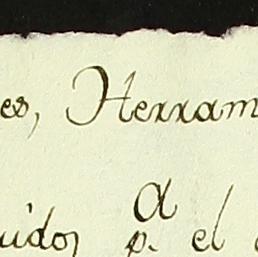 es, Herram
uidos p.ª el